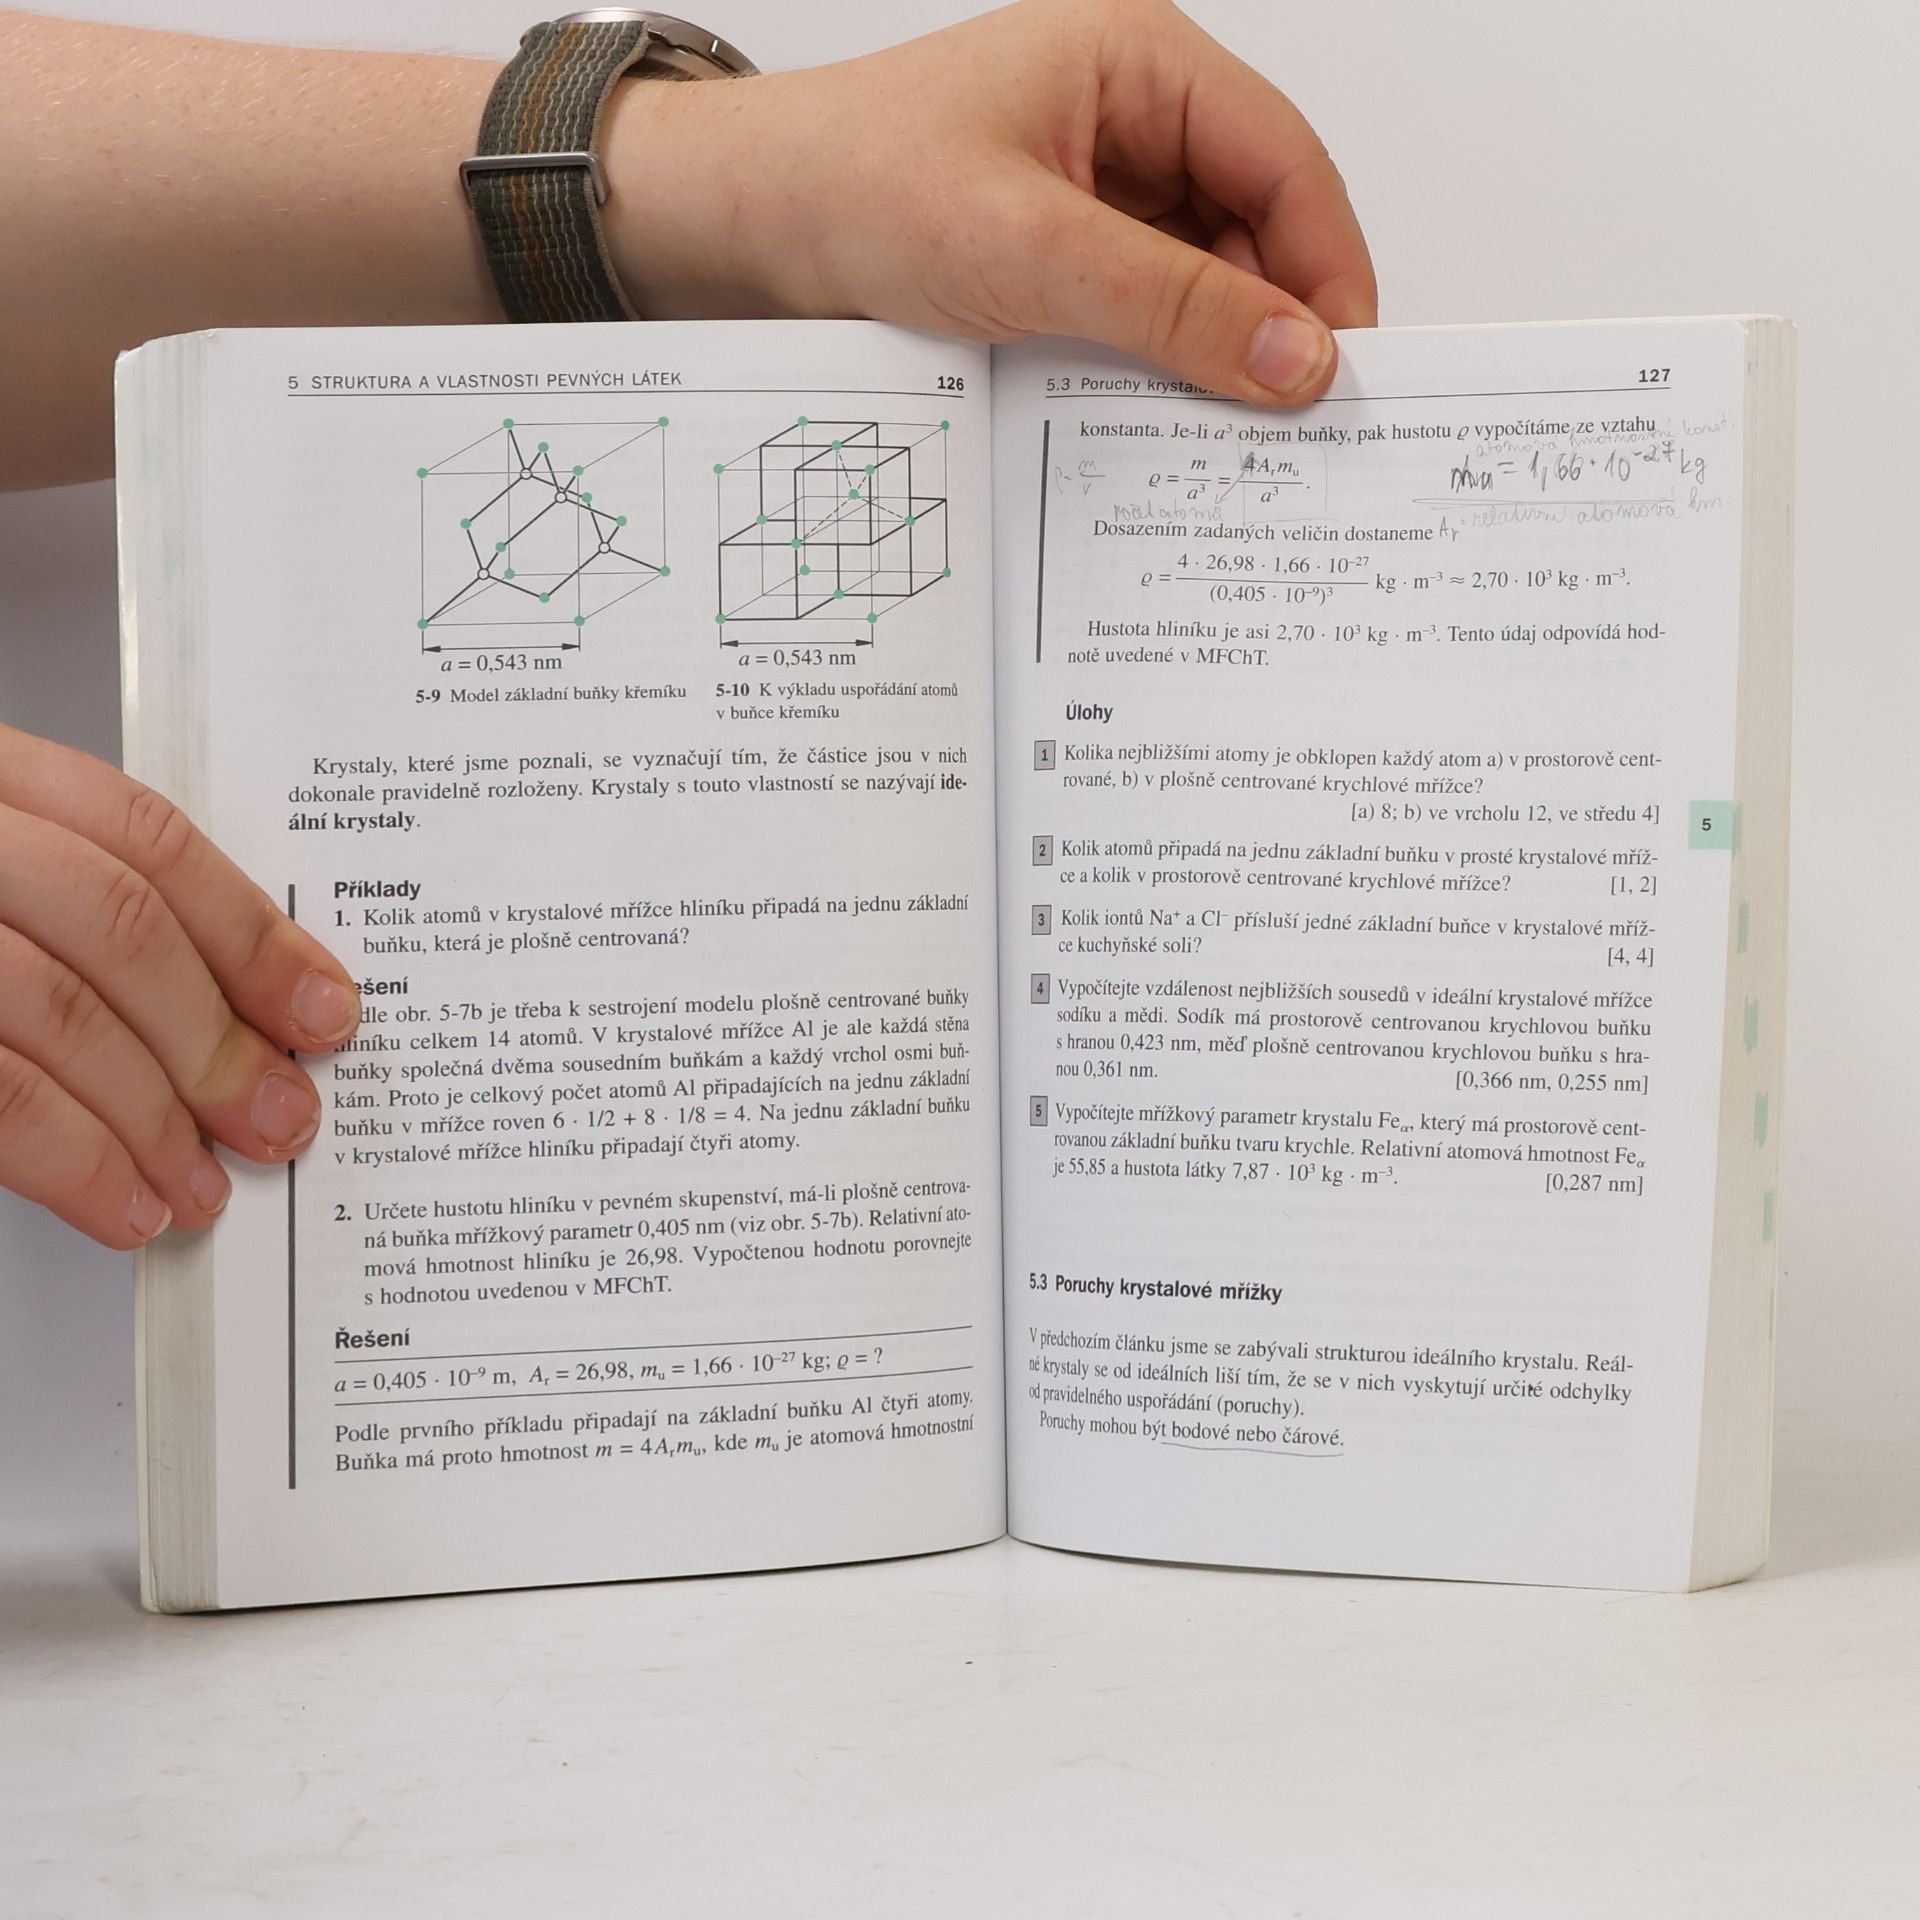 5 STRUKTURA A VLASTNOSTI PEVNÝCH LÁTEK 126
a = 0,543 nm
a = 0,543 nm
5-9 Model základní buňky křemíku
5-10 K výkladu uspořádání atomů
v buňce křemíku
Krystaly, které jsme poznali, se vyznačují tím, že částice jsou v nich
dokonale pravidelně rozloženy. Krystaly s touto vlastností se nazývají ide-
ální krystaly.
Příklady
1. Kolik atomů v krystalové mřížce hliníku připadá na jednu základní
buňku, která je plošně centrovaná?
ešení
dle obr. 5-7b je třeba k sestrojení modelu plošně centrované buňky
hliníku celkem 14 atomů. V krystalové mřížce Al je ale každá stěna
buňky společná dvěma sousedním buňkám a každý vrchol osmi buň-
kám. Proto je celkový počet atomů Al připadajících na jednu základní
buňku v mřížce roven 6 · 1/2 + 8 · 1/8 = 4. Na jednu základní buňku
v krystalové mřížce hliníku připadají čtyři atomy.
2. Určete hustotu hliníku v pevném skupenství, má-li plošně centrova-
ná buňka mřížkový parametr 0,405 nm (viz obr. 5-7b). Relativní ato-
mová hmotnost hliníku je 26,98. Vypočtenou hodnotu porovnejte
s hodnotou uvedenou v MFChT.
Řešení
a = 0,405 · 10⁻⁹ m, Aᵣ = 26,98, mᵤ = 1,66 · 10⁻²⁷ kg; ϱ = ?
Podle prvního příkladu připadají na základní buňku Al čtyři atomy.
Buňka má proto hmotnost m = 4Aᵣmᵤ, kde mᵤ je atomová hmotnostní
5.3 Poruchy 127
konstanta. Je-li a³ objem buňky, pak hustotu ϱ vypočítáme ze vztahu
atomová hmotnostní konst.
ϱ = m/a³ = 4Aᵣmᵤ/a³.
= 1,66 · 10⁻²⁷ kg
počet atomů
Aᵣ = relativní atomová hm.
Dosazením zadaných veličin dostaneme
ϱ = 4 · 26,98 · 1,66 · 10⁻²⁷/(0,405 · 10⁻⁹)³ kg · m⁻³ ≈ 2,70 · 10³ kg · m⁻³.
Hustota hliníku je asi 2,70 · 10³ kg · m⁻³. Tento údaj odpovídá hod-
notě uvedené v MFChT.
Úlohy
1 Kolika nejbližšími atomy je obklopen každý atom a) v prostorově cent-
rované, b) v plošně centrované krychlové mřížce?
[a) 8; b) ve vrcholu 12, ve středu 4]
5
2 Kolik atomů připadá na jednu základní buňku v prosté krystalové mříž-
ce a kolik v prostorově centrované krychlové mřížce? [1, 2]
3 Kolik iontů Na⁺ a Cl⁻ přísluší jedné základní buňce v krystalové mříž-
ce kuchyňské soli? [4, 4]
4 Vypočítejte vzdálenost nejbližších sousedů v ideální krystalové mřížce
sodíku a mědi. Sodík má prostorově centrovanou krychlovou buňku
s hranou 0,423 nm, měď plošně centrovanou krychlovou buňku s hra-
nou 0,361 nm. [0,366 nm, 0,255 nm]
5 Vypočítejte mřížkový parametr krystalu Feα, který má prostorově cent-
rovanou základní buňku tvaru krychle. Relativní atomová hmotnost Feα
je 55,85 a hustota látky 7,87 · 10³ kg · m⁻³. [0,287 nm]
5.3 Poruchy krystalové mřížky
V předchozím článku jsme se zabývali strukturou ideálního krystalu. Reál-
né krystaly se od ideálních liší tím, že se v nich vyskytují určité odchylky
od pravidelného uspořádání (poruchy).
Poruchy mohou být bodové nebo čárové.